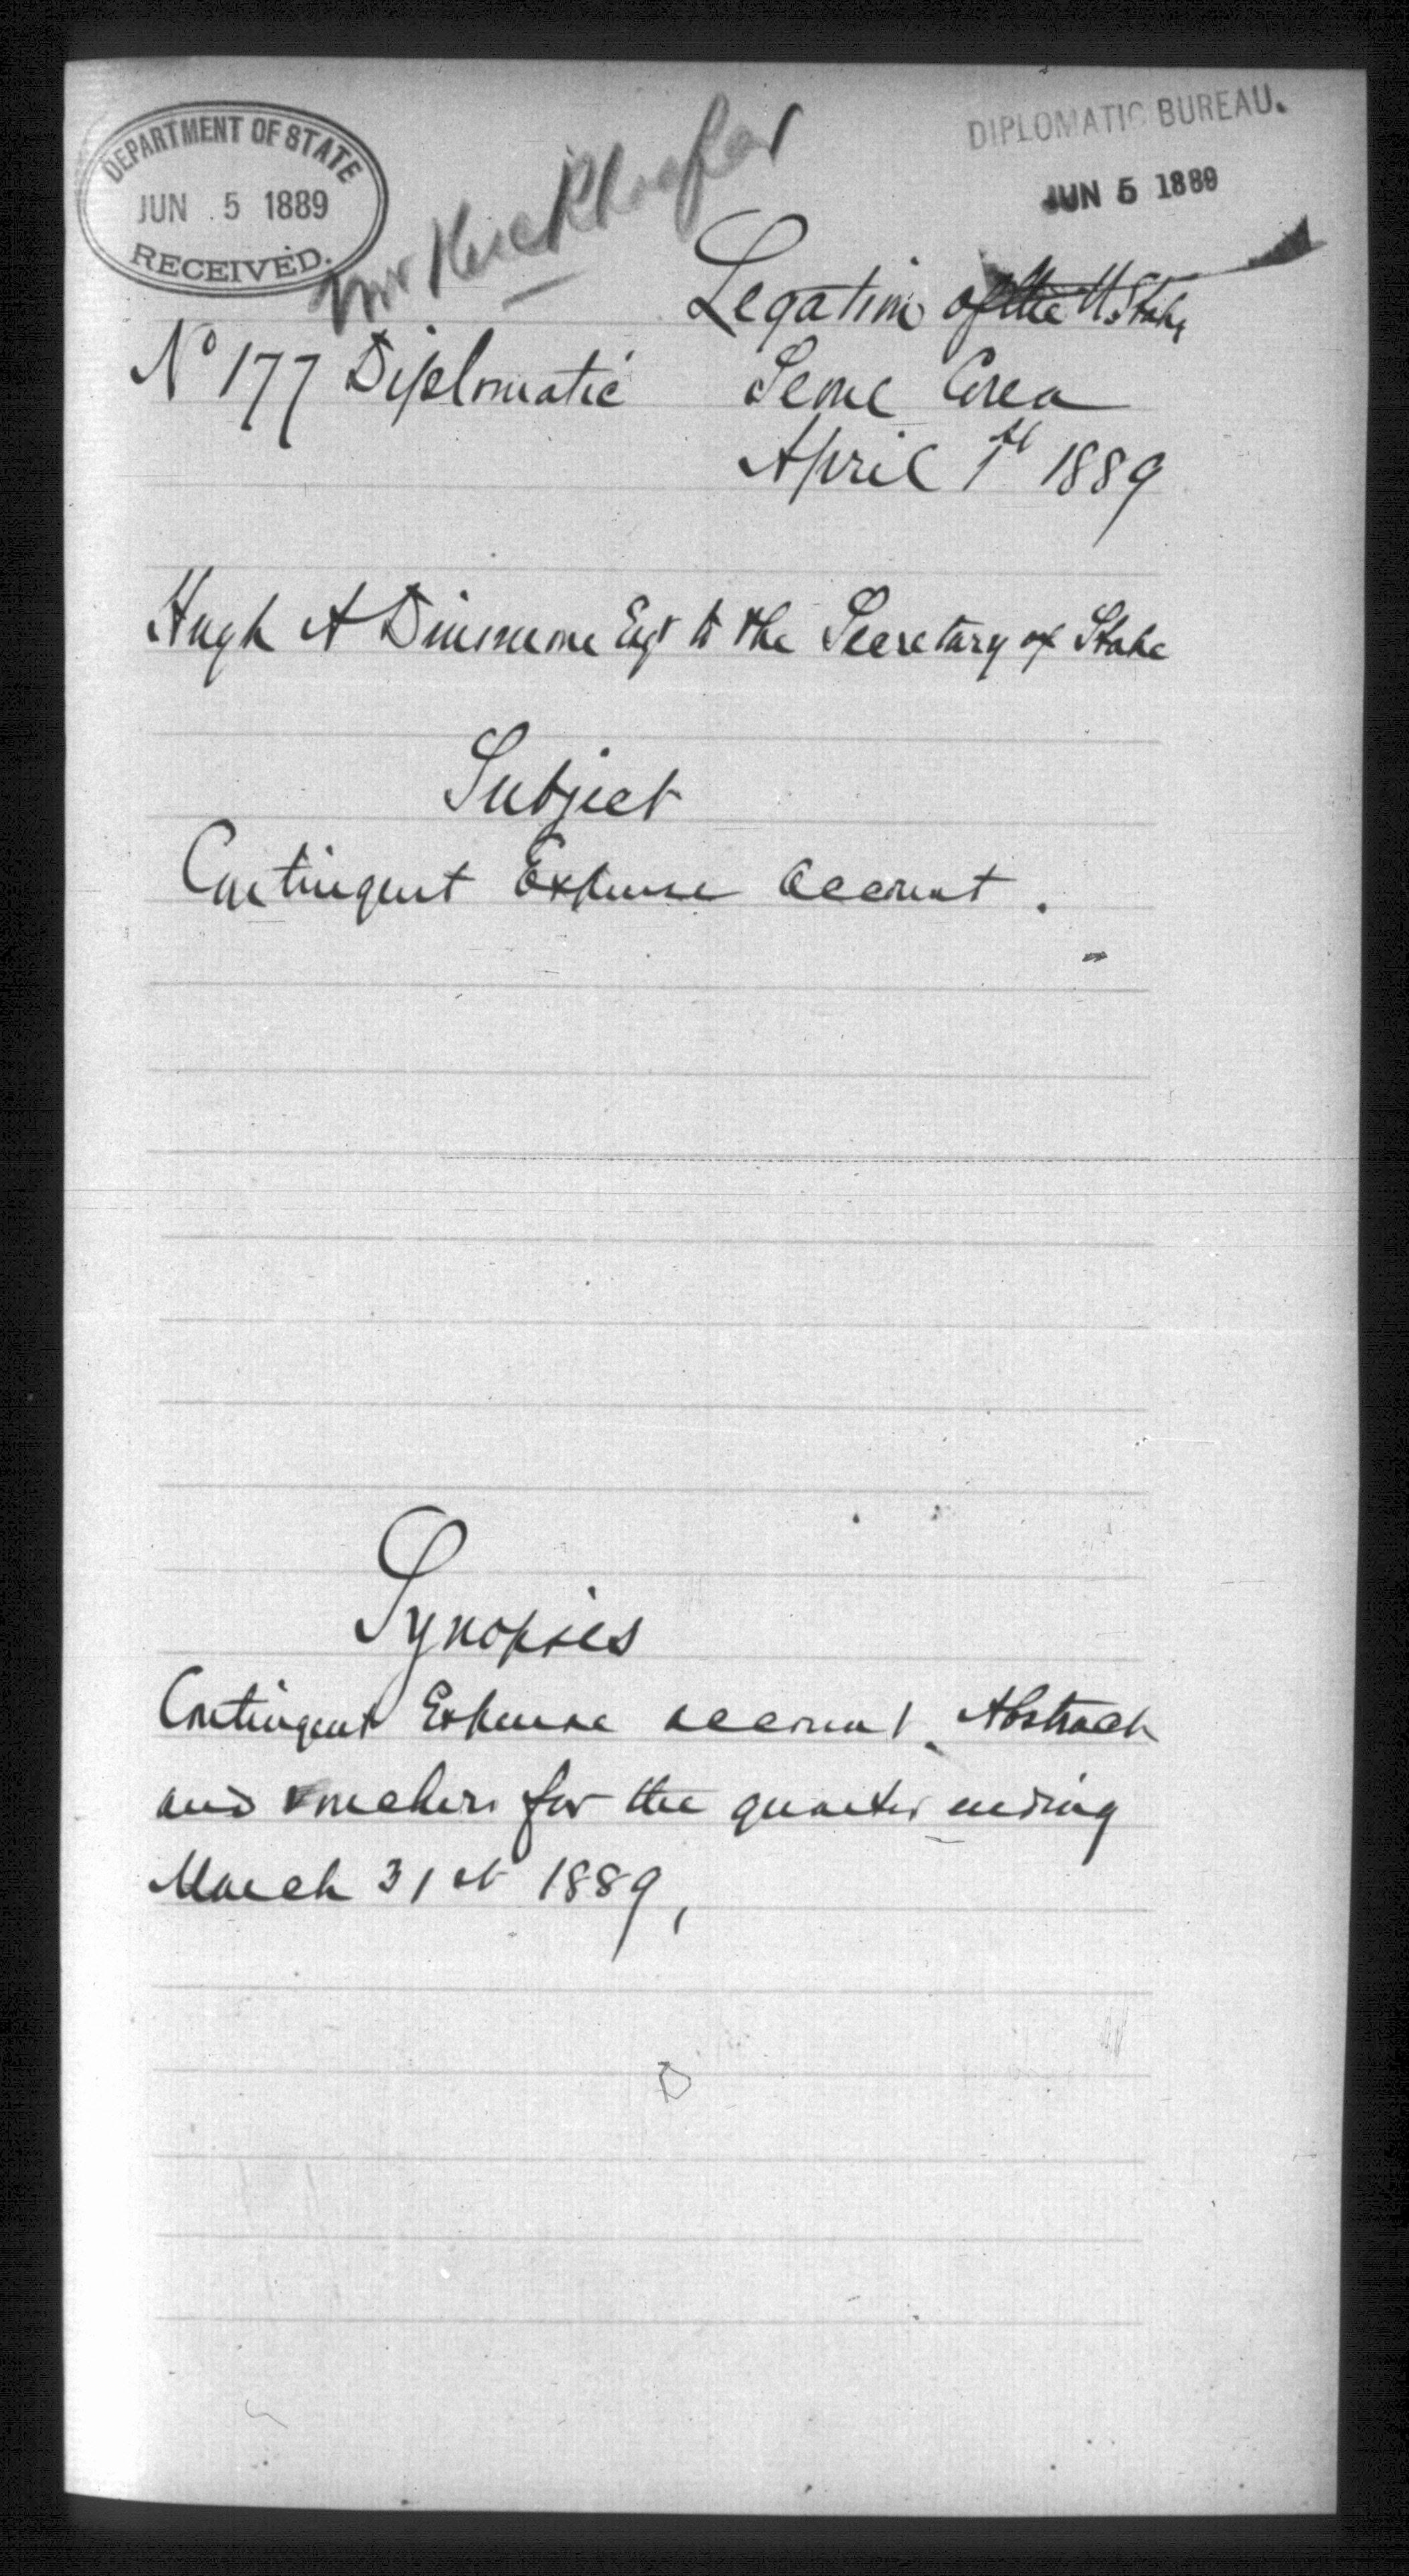 DEPARTMENT OF STATE
JUN 5 1889
RECEIVED.
DIPLOMATIC BUREAU.
JUN 5 1889
Mr Kieckhoefer
Legation of the U. States
No 177 Diplomatic
Seoul Corea
April 1st 1889
Hugh A Dinsmore Esqr to the Secretary of State
Subject
Contingent Expense Account.
Synopsies
Contingent Expense account. Abstract
and vouchers for the quarter ending
March 31st 1889,